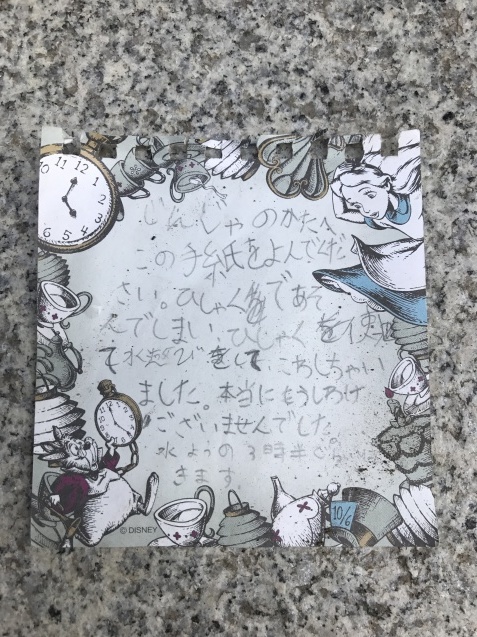 じんじゃのかたへ
この手紙をよんでくだ
さい。ひしゃくであそ
んでしまい、ひしゃくを使っ
て水あそびをして、こわしちゃい
ました。本当にもうしわけ
ございませんでした
水ようの3時半ぐら
きます
12
11
10
© DISNEY
10/6